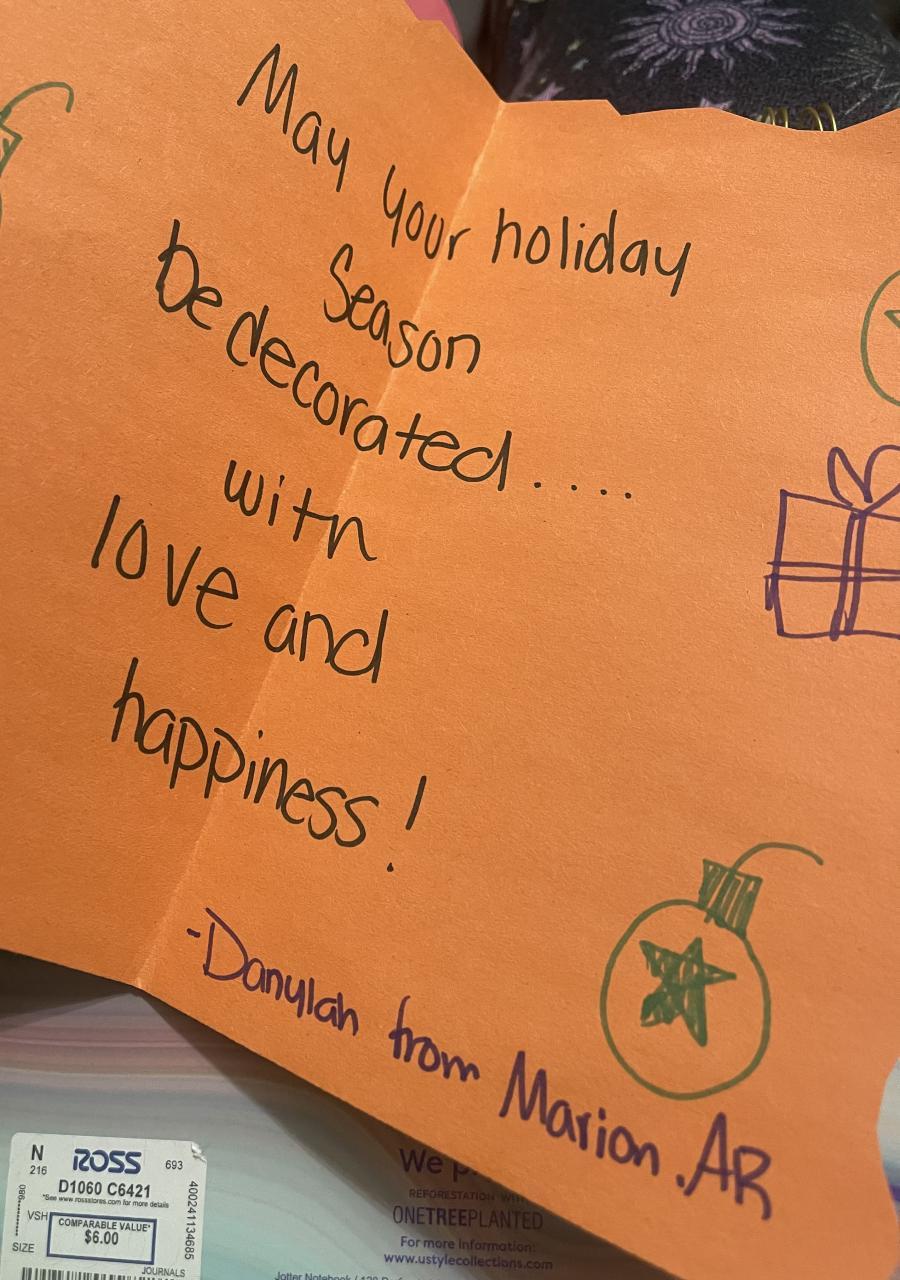 May your holiday
Season
be decorated....
with
love and
happiness!
-Danylah from Marion.AR
N
216
ROSS
693
D1060 C6421
*See www.rossstores.com for more details
VSH
COMPARABLE VALUE*
$6.00
SIZE
JOURNALS
400241134685
We
REFORESTATION WITH
ONETREEPLANTED
For more Information:
www.ustylecollections.com
Jotter Notebook / 120